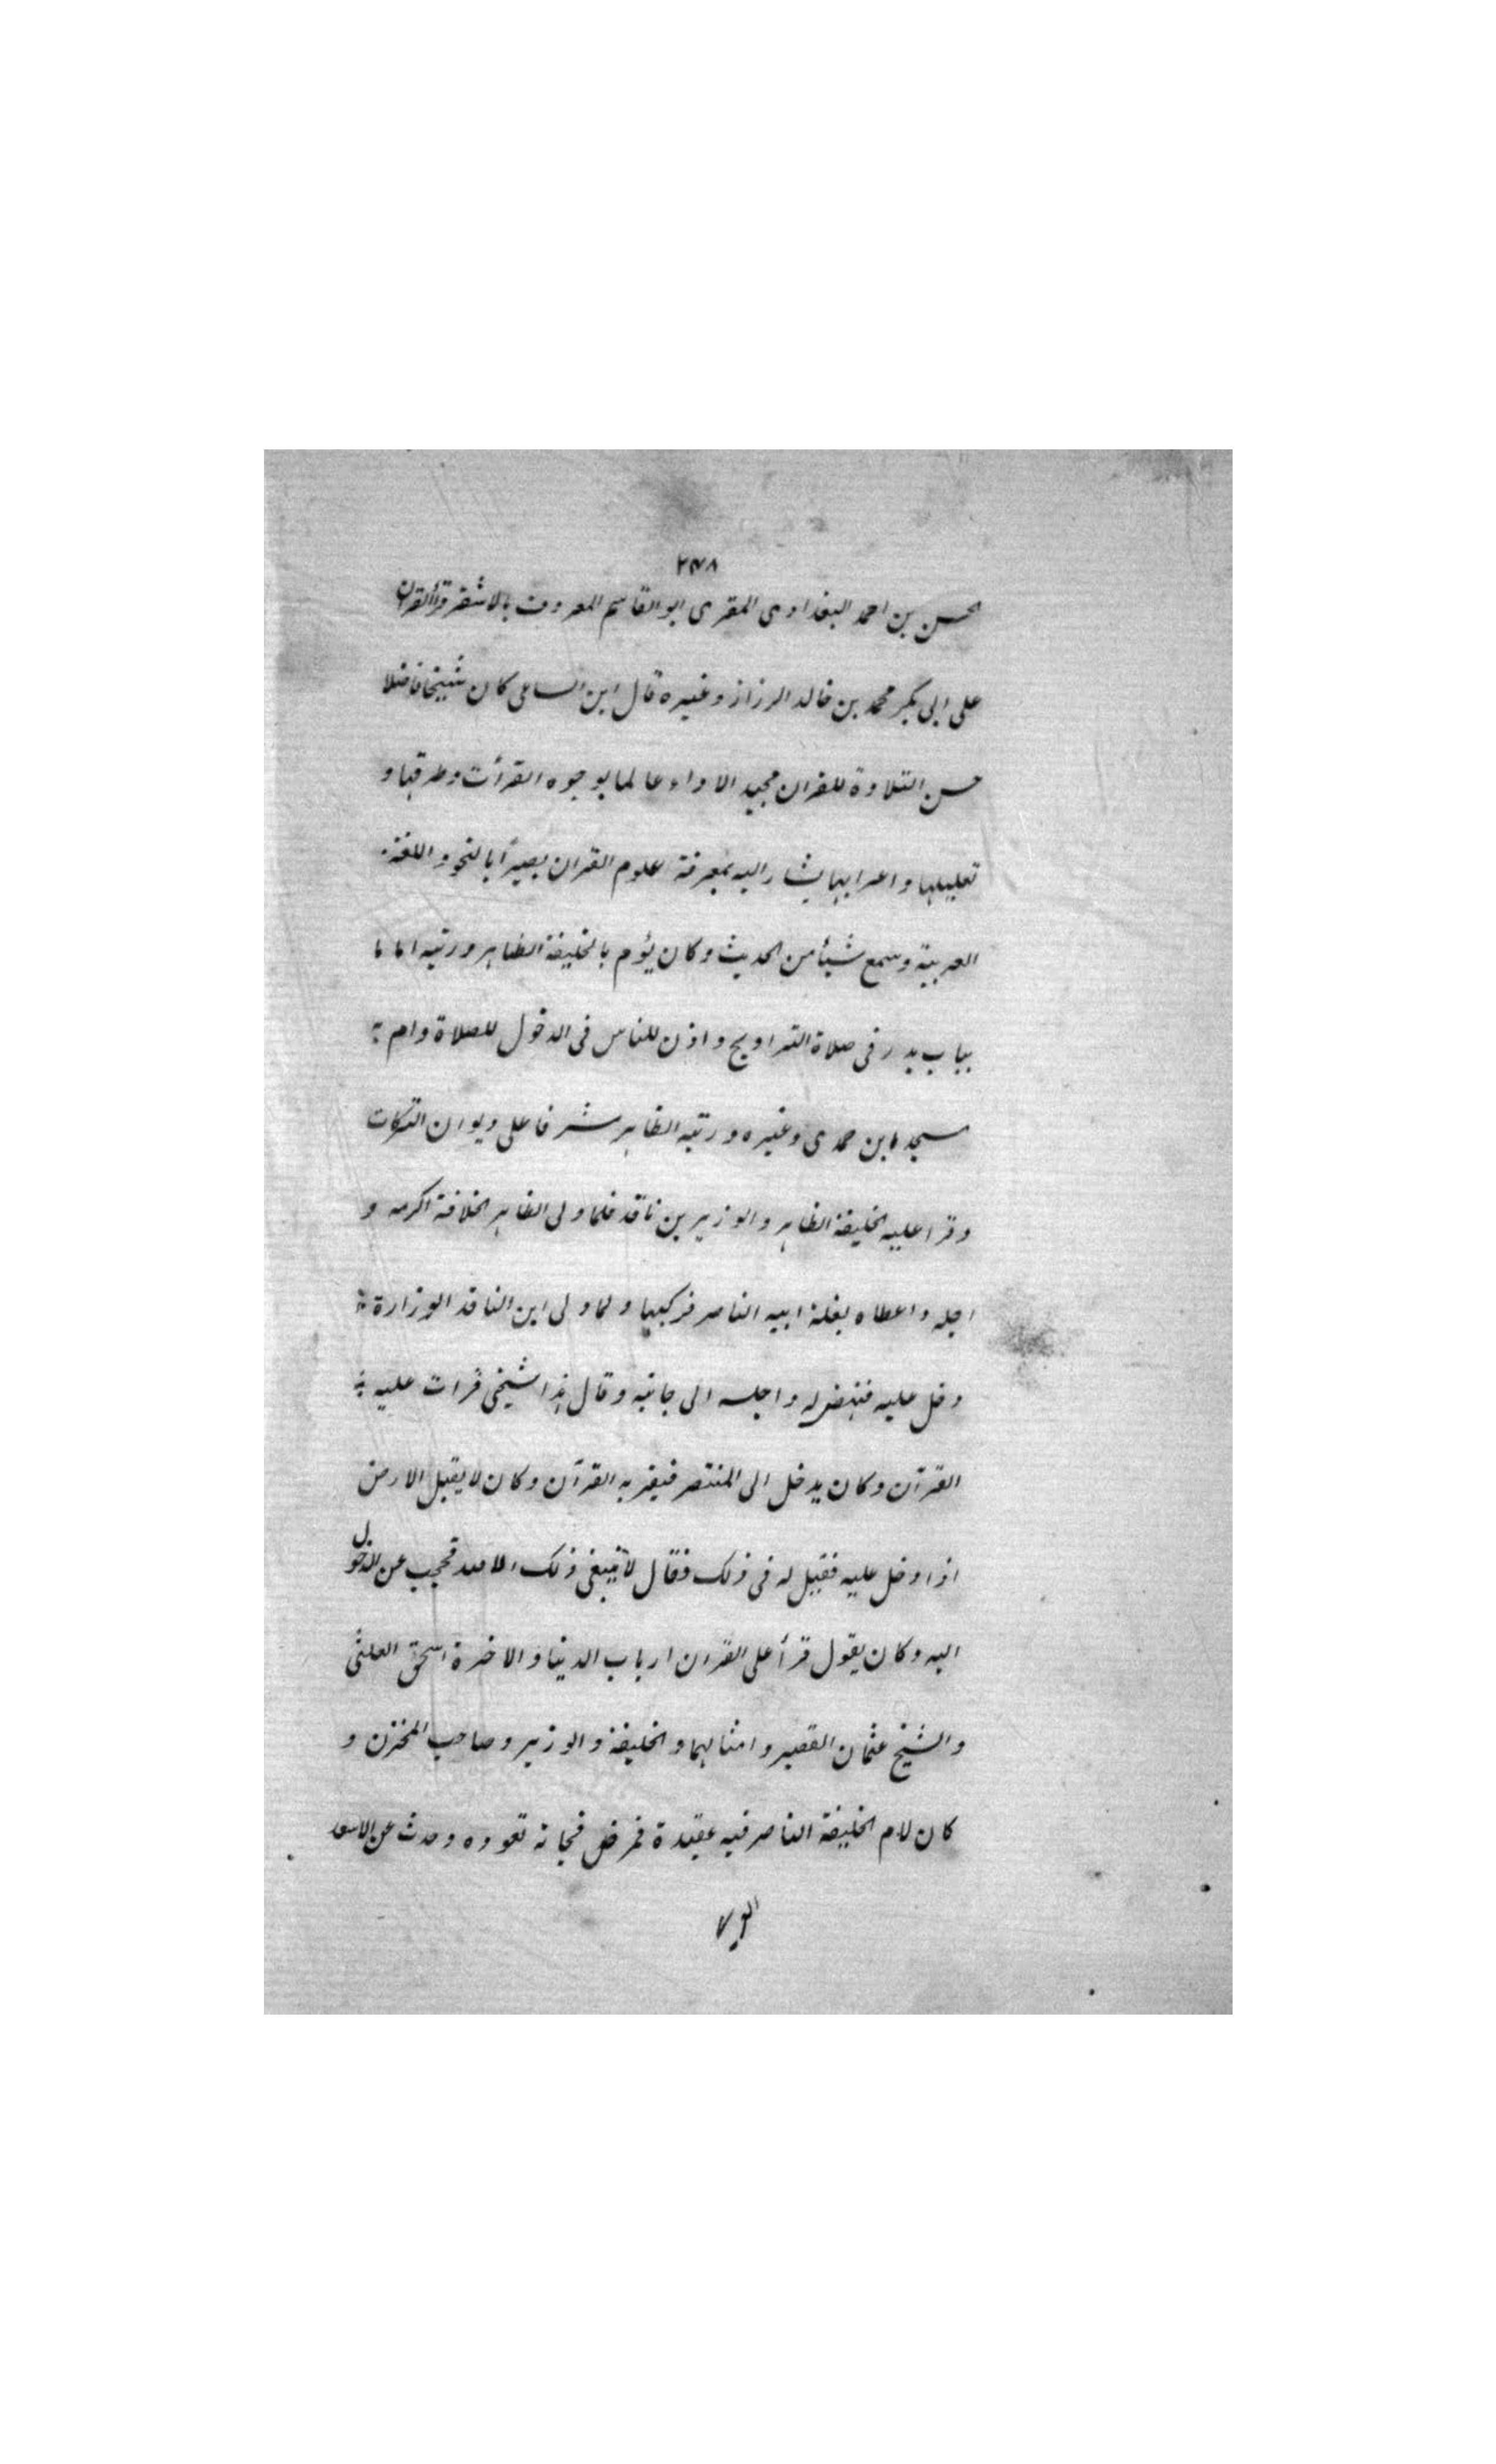 ٢٣٨
الحسن بن احمد البغدادى المقرى ابو القاسم المعروف بالاشقر قرأ القرآن
على ابى بكر محمد بن خالد الرزاز وغيره قال ابن الساعى كان شيخا فاضلا
حسن التلاوة للقران مجيد الاداء عالما بوجوه القرأت وطرقها و
تعليلها واعرابها يشار اليه بمعرفة علوم القران بصيرًا بالنحو واللغة
العربية وسمع شيأ من الحديث وكان يؤم بالخليفة الظاهر ورتبه اماما
بباب بدر فى صلاة التراويح واذن للناس فى الدخول للصلاة وام به
مسجد ابن حمدى وغيره ورتبه الظاهر مشرفا على ديوان التركات
وقرا عليه الخليفة الظاهر والوزير بن ناقد فلما ولى الظاهر الخلافة اكرمه و
اجله واعطاه بغلة ابيه الناصر فركبها ولما ولى ابن الناقد الوزارة
دخل عليه فنهض له واجلسه الى جانبه وقال هذا شيخى قرات عليه
القرآن وكان يدخل الى المنتصر فيقريه القرآن وكان لا يقبل الارض
اذا دخل عليه فقيل له فى ذلك فقال لا ينبغى ذلك الا لله فحجب عن الدخول
اليه وكان يقول قرأ على القران ارباب الدنيا والاخرة اسحق العلثى
والشيخ عثمان القصير وامثالهما والخليفة والوزير وصاحب المخزن و
كان لام الخليفة الناصر فيه عقيدة فمرض فجاته تعوده وحدث عن الاسعد